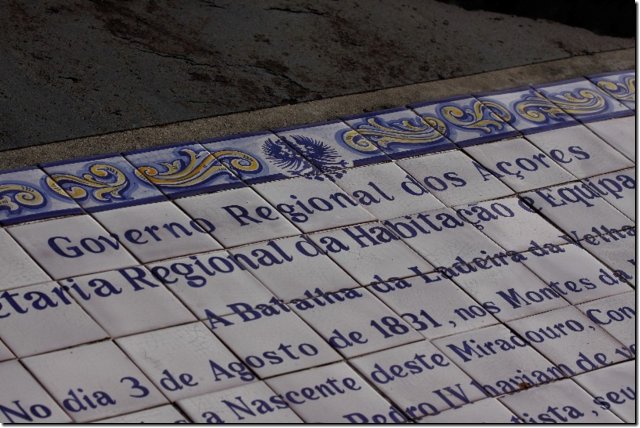 Governo Regional dos Açores
etaria Regional da Habitação e Equipa
A Batalha da Ladeira da Velha
No dia 3 de Agosto de 1831, nos Montes da
a Nascente deste Miradouro, Con
Pedro IV haviam de ve
tista, seu